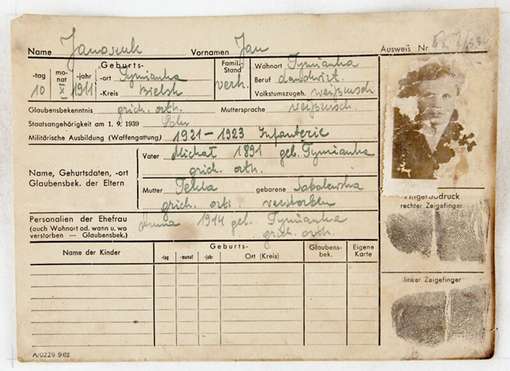 Name Janoszuk Vornamen Jan Ausweis Nr.
Geburts- Famil.- Stand verh. Wohnort Tymianka
-tag mo-nat -jahr -ort Tymianka Beruf Landwirt
10 X 1911 -Kreis Bielsk Volkstumszugeh. weißrusisch
Glaubensbekenntnis grich. orth. Muttersprache weißrusisch.
Staatsangehörigkeit am 1. 9. 1939
Militärische Ausbildung (Waffengattung) 1921 - 1923 Infanterie
Name, Geburtsdaten, -ort Glaubensbek. der Eltern
Vater Michał 1891 geb. Tymianka
grich. orth.
Mutter geborene
grich. orth. verstorben
Personalien der Ehefrau 1914 geb. Tymianka
(auch Wohnort od. wann u. wo verstorben — Glaubensbek.) grich. orth.
Fingerabdruck
rechter Zeigefinger
linker Zeigefinger
Name der Kinder Geburts- Glaubens-bek. Eigene Karte
-tag -monat -jahr Ort (Kreis)
A/0229 9/62